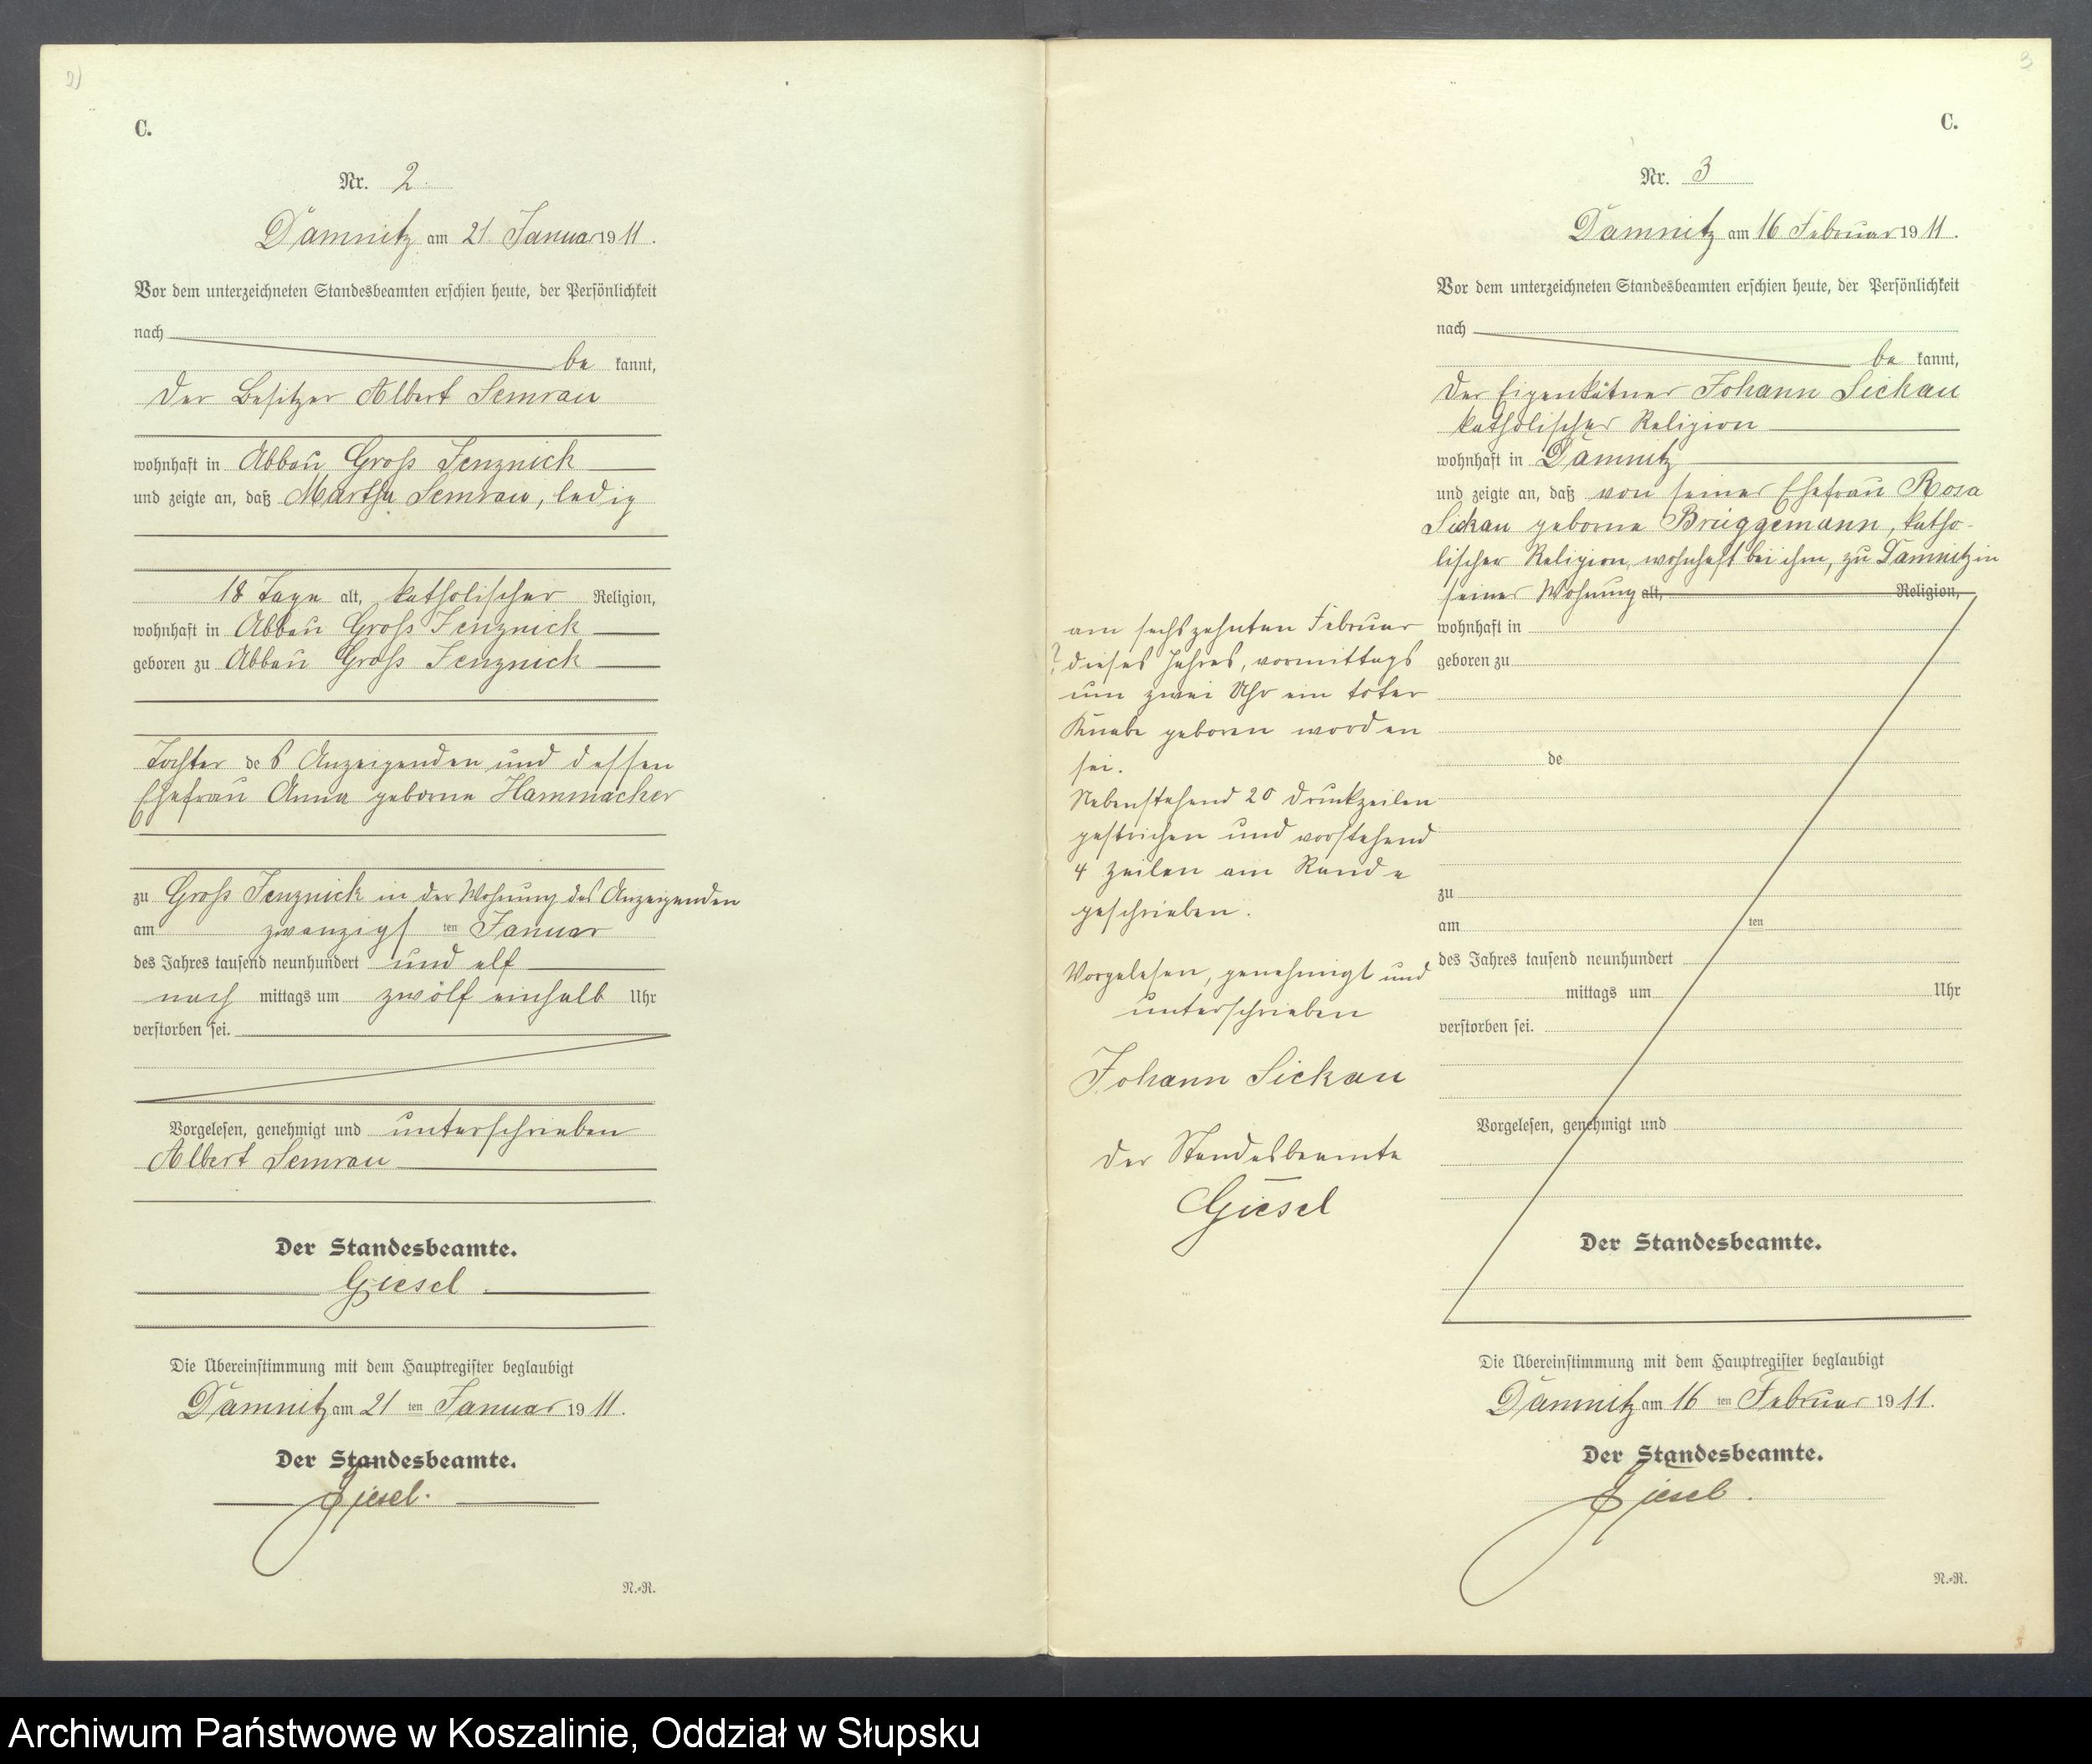 2)
C.
Nr. 2.
Damnitz am 21. Januar 1911.
Vor dem unterzeichneten Standesbeamten erschien heute, der Persönlichkeit
nach
be kannt,
Der Besitzer Albert Semrau
wohnhaft in Abbau Groß Jenznick
und zeigte an, daß Martha Semrau, ledig
18 Tage alt, katholischer Religion,
wohnhaft in Abbau Groß Jenznick
geboren zu Abbau Groß Jenznick
Tochter des Anzeigenden und dessen
Ehefrau Anna geborne Hammacher
zu Groß Jenznick in der Wohnung des Anzeigenden
am zwanzigsten Januar
des Jahres tausend neunhundert und elf
nach mittags um zwölf einhalb Uhr
verstorben sei.
Vorgelesen, genehmigt und unterschrieben
Albert Semrau
Der Standesbeamte.
Giesel
Die Übereinstimmung mit dem Hauptregister beglaubigt
Damnitz am 21 ten Januar 1911.
Der Standesbeamte.
Giesel.
N.-R.
3
C.
Nr. 3
Damnitz am 16 Februar 1911.
Vor dem unterzeichneten Standesbeamten erschien heute, der Persönlichkeit
nach
be kannt,
Der Eigenkätner Johann Sickau
katholischer Religion
wohnhaft in Damnitz
und zeigte an, daß von seiner Ehefrau Rosa
Sickau geborne Brüggemann, katho-
lischer Religion, wohnhaft bei ihm, zu Damnitz in
seiner Wohnung alt, Religion,
am sechszehnten Februar
dieses Jahres, vormittags
um zwei Uhr ein toter
Knabe geboren worden
sei.
Nebenstehend 20 Druckzeilen
gestrichen und vorstehend
4 Zeilen am Rande
geschrieben.
Vorgelesen, genehmigt und
unterschrieben
Johann Sickau
Der Standesbeamte
Giesel
wohnhaft in
geboren zu
de
zu
am ten
des Jahres tausend neunhundert
mittags um Uhr
verstorben sei.
Vorgelesen, genehmigt und
Der Standesbeamte.
Die Übereinstimmung mit dem Hauptregister beglaubigt
Damnitz am 16 ten Februar 1911.
Der Standesbeamte.
Giesel.
N.-R.
Archiwum Państwowe w Koszalinie, Oddział w Słupsku